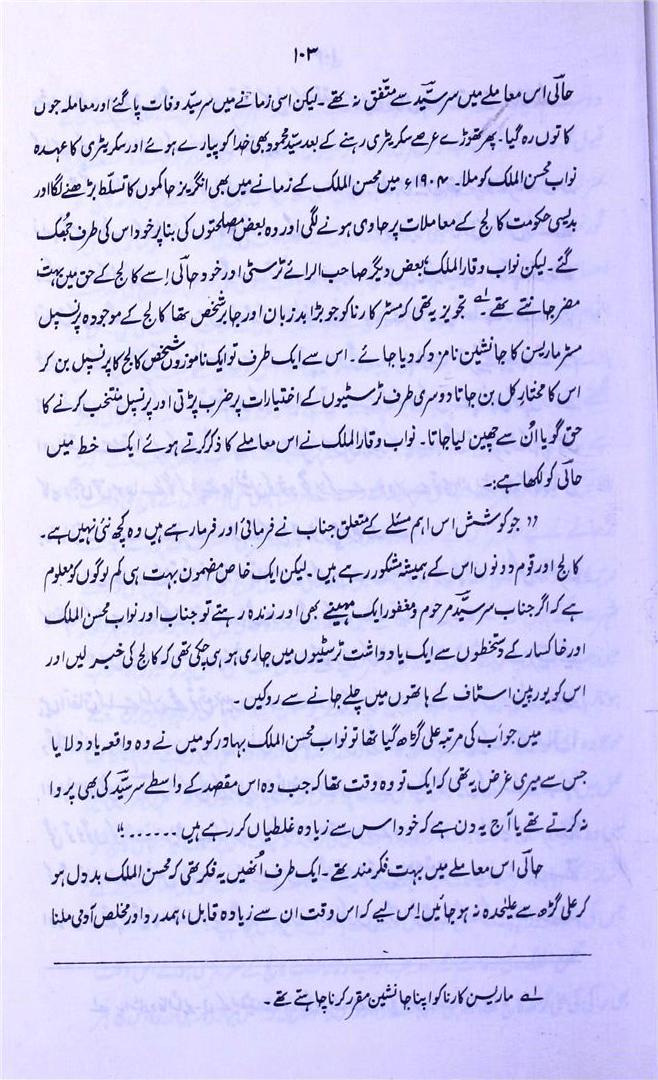 ۱۰۳
حالیؔ اس معاملے میں سرسیّد سے متّفق نہ تھے۔ لیکن اسی زمانے میں سرسیّد وفات پا گئے اور معاملہ جوں
کا توں رہ گیا۔ پھر تھوڑے عرصے سکریٹری رہنے کے بعد سیّد محمود بھی خدا کو پیارے ہوئے اور سکریٹری کا عہدہ
نواب محسن الملک کو ملا۔ ۱۹۰۴ء میں محسن الملک کے زمانے میں بھی انگریز حاکموں کا تسلّط بڑھنے لگا اور
بدیسی حکومت کالج کے معاملات پر حاوی ہونے لگی اور وہ بعض مصلحتوں کی بنا پر خود اس کی طرف جُھک
گئے۔ لیکن نواب وقار الملک، بعض دیگر صاحب الرائے ٹرسٹی اور خود حالیؔ اِسے کالج کے حق میں بہت
مضر جانتے تھے۔ لے تجویز یہ تھی کہ مسٹر کارنا کو جو بڑا بد زبان اور جابر شخص تھا کالج کے موجودہ پرنسپل
مسٹر ماریسن کا جانشین نامزد کر دیا جائے۔ اس سے ایک طرف تو ایک ناموزوں شخص کالج کا پرنسپل بن کر
اس کا مختار کل بن جاتا دوسری طرف ٹرسٹیوں کے اختیارات پر ضرب پڑتی اور پرنسپل منتخب کرنے کا
حق گویا اُن سے چھین لیا جاتا۔ نواب وقار الملک نے اس معاملے کا ذکر کرتے ہوئے ایک خط میں
حالیؔ کو لکھا ہے:۔
"جو کوشش اس اہم مسئلے کے متعلق جناب نے فرمائی اور فرما رہے ہیں وہ کچھ نئی نہیں ہے۔
کالج اور قوم دونوں اس کے ہمیشہ مشکور رہے ہیں۔ لیکن ایک خاص مضمون بہت ہی کم لوگوں کو معلوم
ہے کہ اگر جناب سرسیّد مرحوم و مغفور ایک مہینے بھی اور زندہ رہتے تو جناب اور نواب محسن الملک
اور خاکسار کے دستخطوں سے ایک یادداشت ٹرسٹیوں میں جاری ہو ہی چکی تھی کہ کالج کی خبر لیں اور
اس کو یورپین اسٹاف کے ہاتھوں میں چلے جانے سے روکیں۔
میں جو اب کی مرتبہ علی گڑھ گیا تھا تو نواب محسن الملک بہادر کو میں نے وہ واقعہ یاد دلایا
جس سے میری غرض یہ تھی کہ ایک تو وہ وقت تھا کہ جب وہ اس مقصد کے واسطے سرسیّد کی بھی پروا
نہ کرتے تھے یا آج یہ دن ہے کہ خود اس سے زیادہ غلطیاں کر رہے ہیں ......"
حالیؔ اس معاملے میں بہت فکر مند تھے۔ ایک طرف اُنھیں یہ فکر تھی کہ محسن الملک بد دل ہو
کر علی گڑھ سے علیٰحدہ نہ ہو جائیں اِس لیے کہ اس وقت ان سے زیادہ قابل، ہمدرد اور مخلص آدمی ملنا
لے ماریسن کارنا کو اپنا جانشین مقرر کرنا چاہتے تھے۔